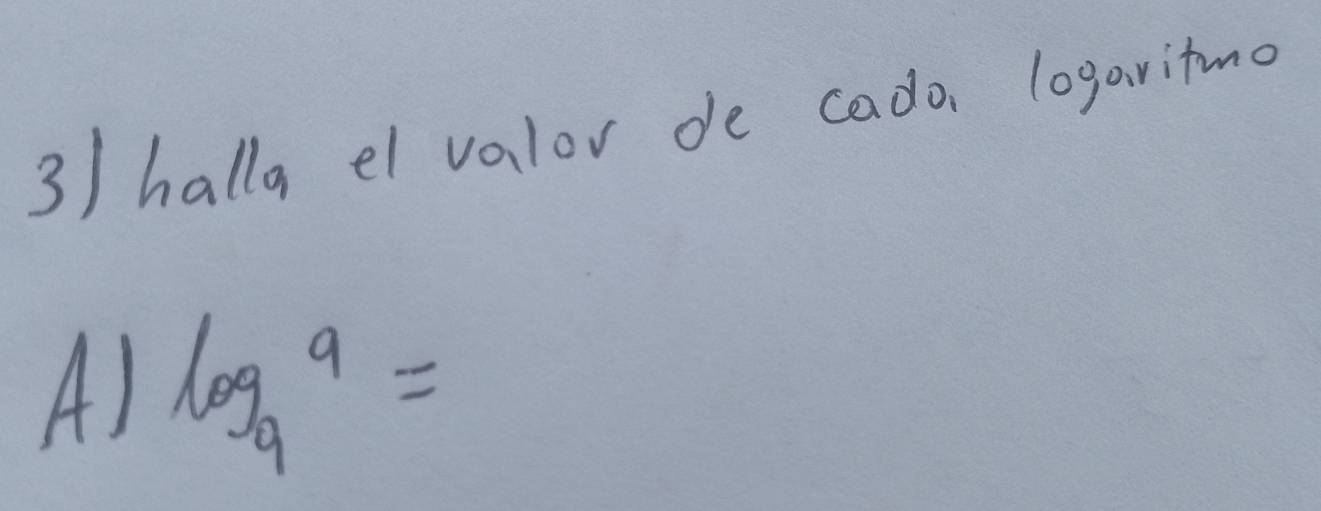 3) halla el valor de cada logaritmo
A) log₉ 9 =